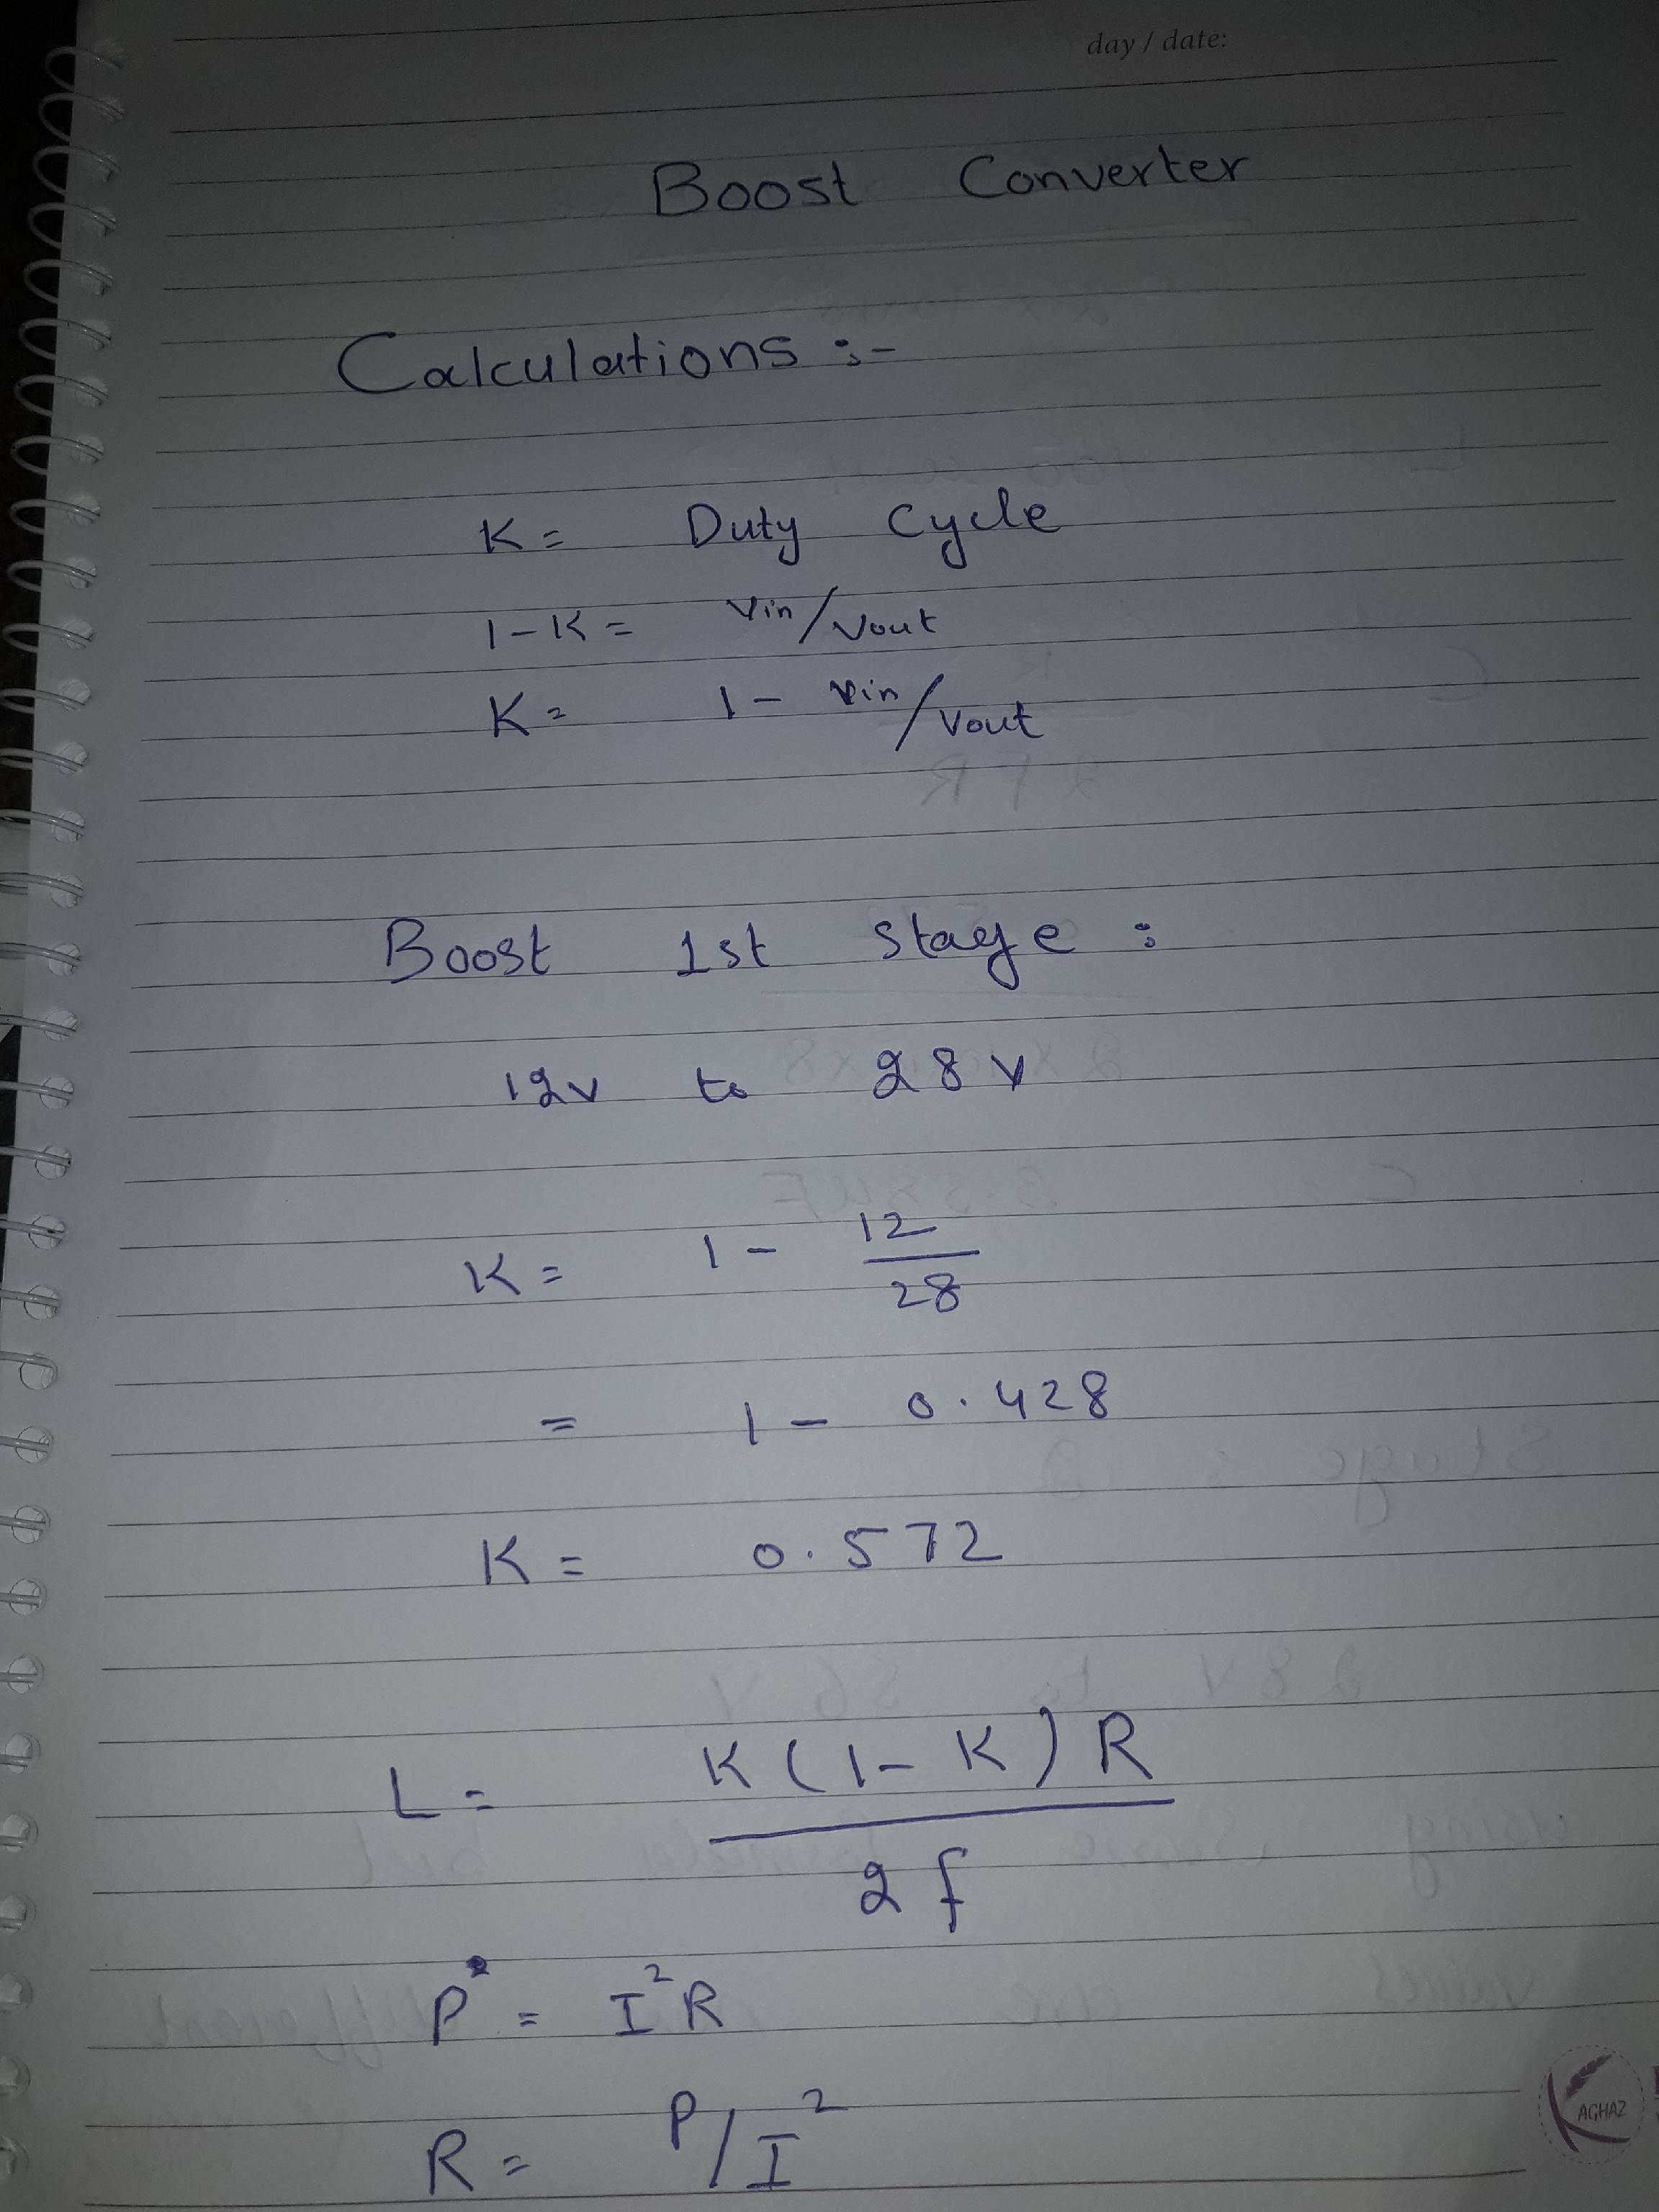 day / date:
Boost Converter
Calculations :-
K = Duty Cycle
1-K = Vin/Vout
K = 1 - Vin/Vout
Boost 1st stage :
12v to 28v
K = 1 - 12/28
= 1 - 0.428
K = 0.572
L = K(1-K)R / 2f
P = I²R
R = P/I²
KAGHAZ